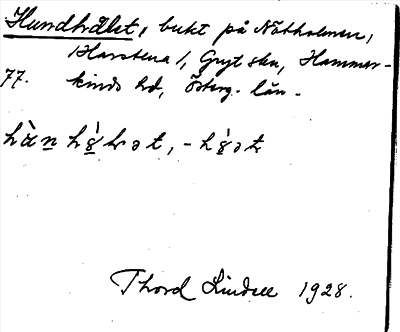 Hundhålet, bukt på Nötholmen,
Harstena 1, Gryt skn, Hammar-
77. kinds hd, Österg. län.
hàn h o̱ l ə t, - h o̱ ə t
Thord Lindell 1928.